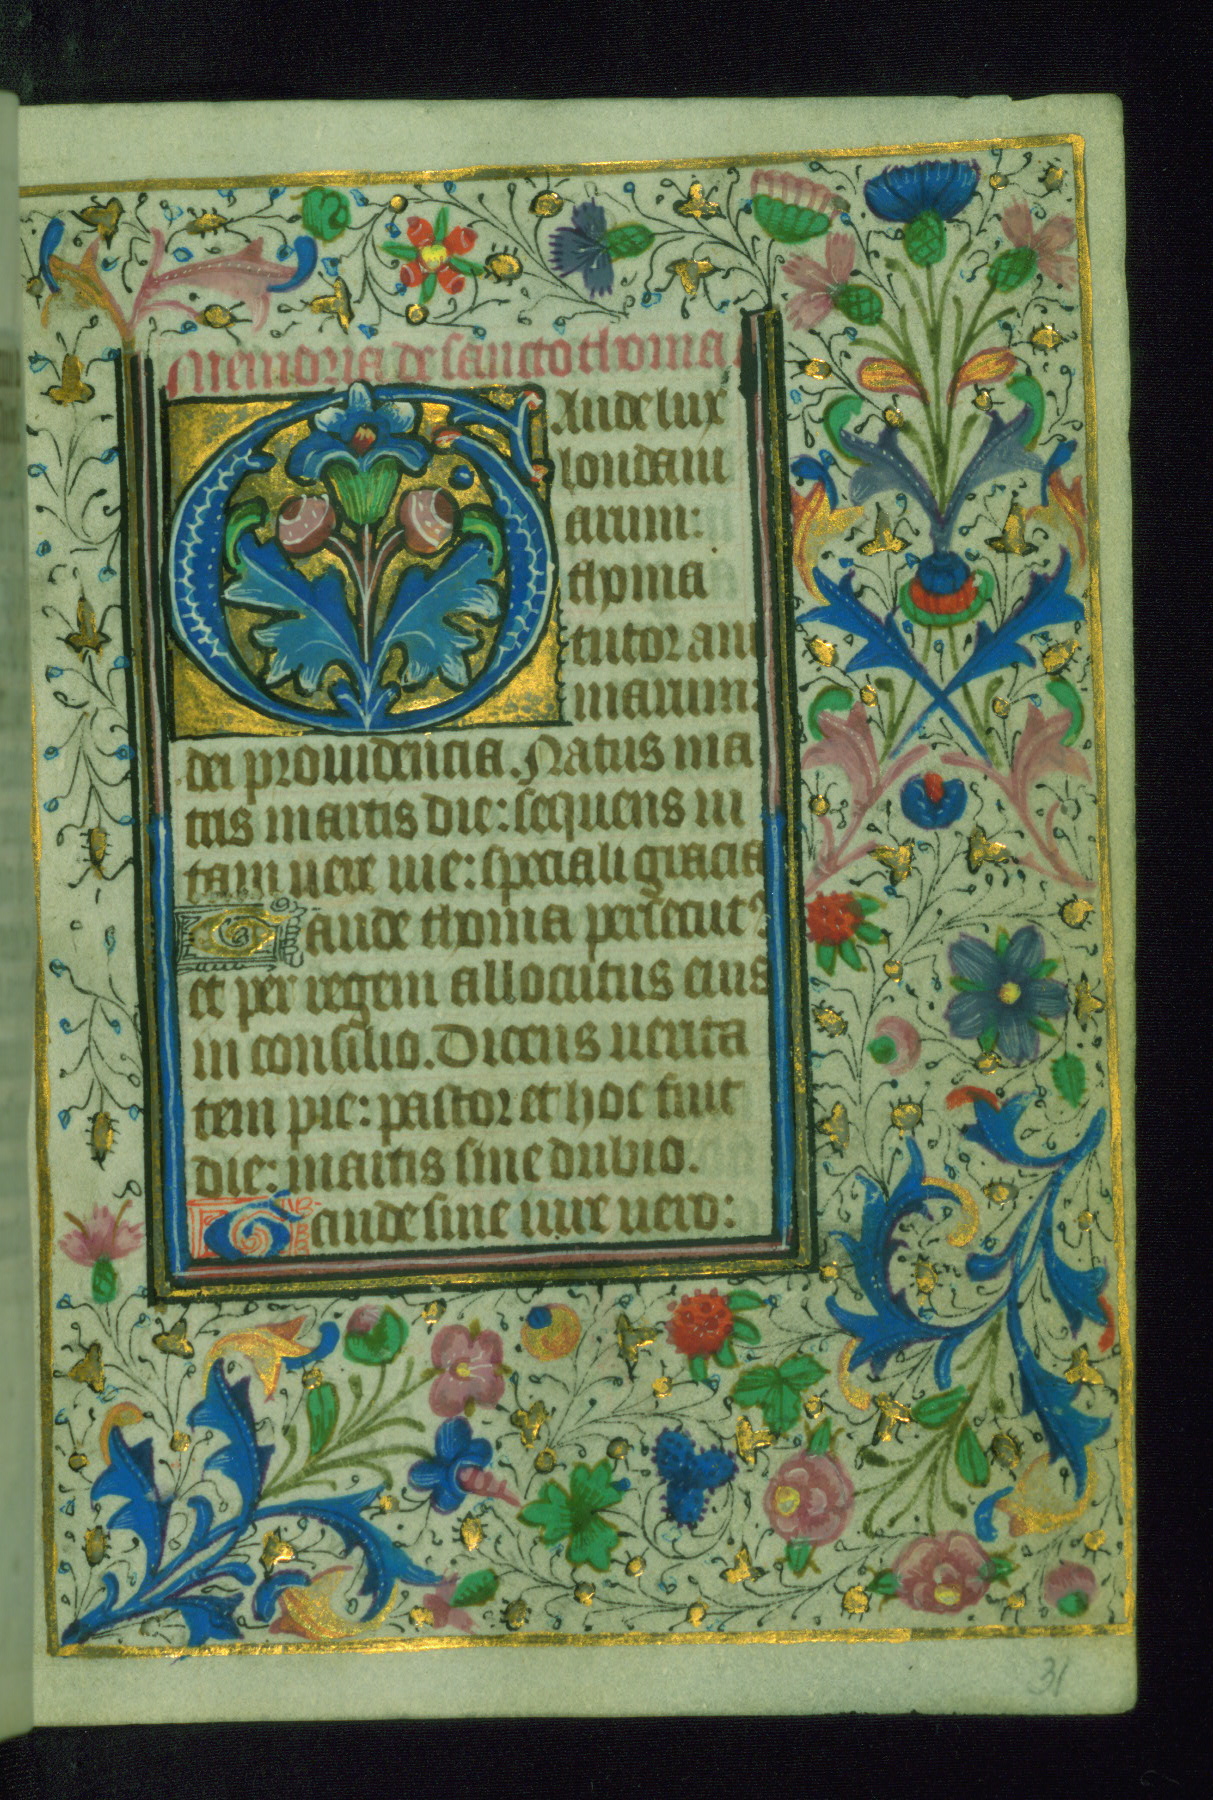 Memoria de sancto thoma.
GAude lux
londoni
arum:
thoma
tutor ani
marum:
dei prouidencia. Natus ma
tris martis die: sequens in
tam uere uie: speciali gracia
Gaude thoma persecut9
et per regem allocutus eius
in consilio. Dicens uerita
tem pie: pastor et hoc fuit
die: martis sine dubio.
Gaude sine iure uero:
31